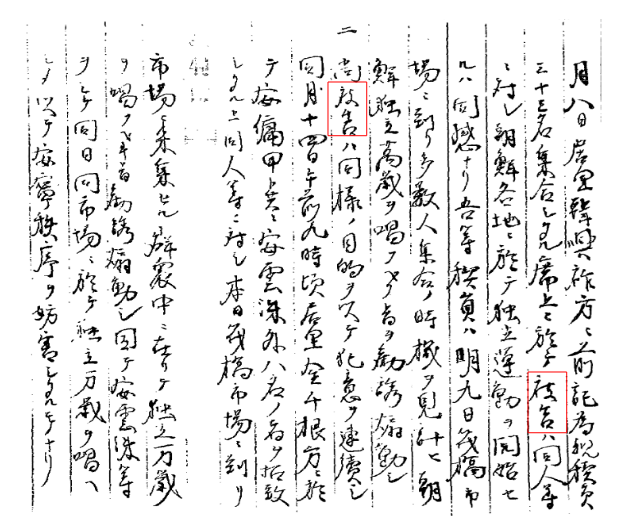 月八日居里韓興祚方ニ前記為親稧員
三十三名集合シタル席上ニ於テ被告ハ同人等
ニ対シ朝鮮各地ニ於テ独立運動ヲ開始セ
ルハ同感ナリ吾等稧員ハ明九日筏橋市
場ニ到リ多数人集合ノ時機ヲ見計ヒ朝
鮮独立萬歳ヲ唱フヘキ旨ヲ勧誘煽動シ
二 尚被告ハ同様ノ目的ヲ以テ犯意ヲ連続シ
同月十四日午前九時頃居里金千根方ニ於
テ安備甲共ニ安雲洙外八名ノ者ヲ招致
シタル上同人等ニ対シ本日筏橋市場ニ到リ
市場ニ来集セル群衆中ニ在リテ独立万歳
ヲ唱フヘキ旨勧誘煽動シ因テ安雲洙等
ヲシテ同日同市場ニ於テ独立万歳ヲ唱ヘ
シメ以テ安寧秩序ヲ妨害シタルモノナリ